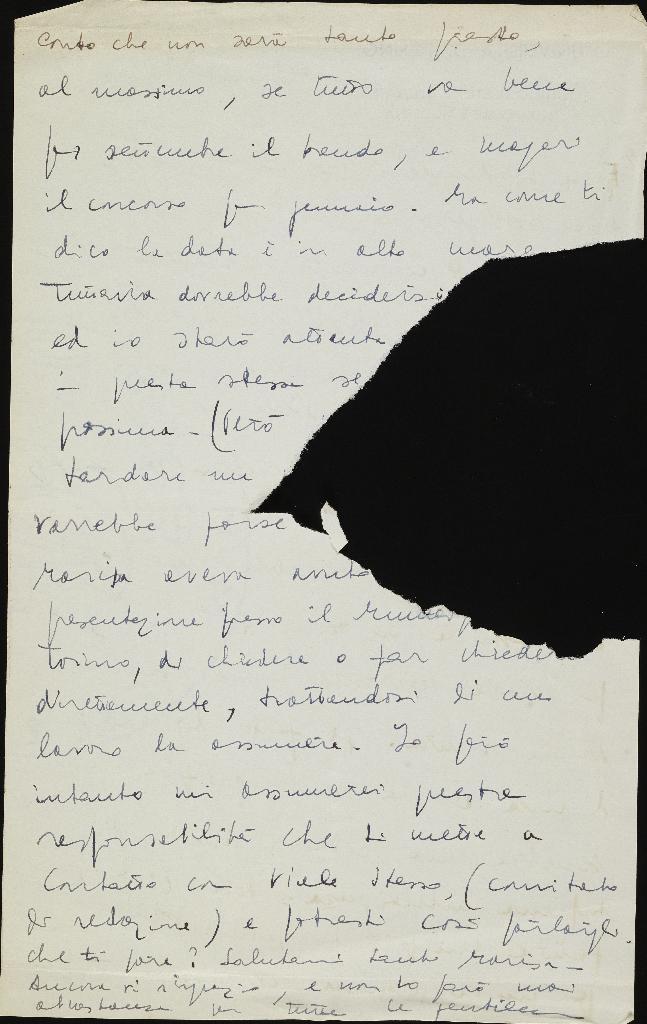 conto che non sarà tanto presto,
al massimo, se tutto va bene
per settembre il bando, e magari
il concorso per gennaio. Ma come ti
dico la data è in alto mare
Tuttavia dovrebbe decidersi
ed io starò attenta
in questa stessa se
prossima - (Però
tardare un
varrebbe forse
Marisa aveva avuto
presentazione presso il
torino, di chiedere o far chiedere
direttamente, trattandosi di un
lavoro da assumere. Io però
intanto mi assumerei questa
responsabilità che ti mette a
contatto con Viale stesso, (comitato
di redazione) e potresti così parlargli.
che ti pare? Salutami tanto Marisa -
Ancora vi ringrazio, e non lo farò mai
abbastanza per tutte le gentilezze